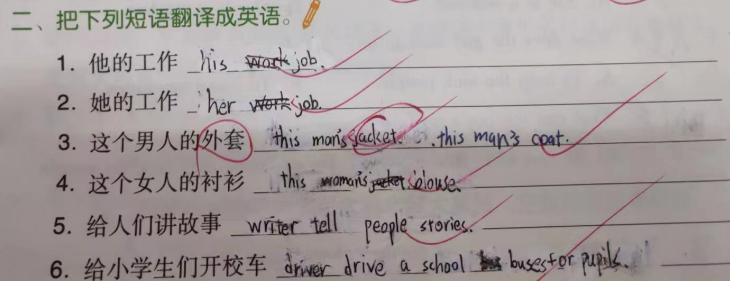 二、把下列短语翻译成英语。
1. 他的工作 his work job.
2. 她的工作 her work job.
3. 这个男人的外套 this man's jacket. this man's coat.
4. 这个女人的衬衫 this woman's jacket blouse.
5. 给人们讲故事 writer tell people stories.
6. 给小学生们开校车 driver drive a school buses for pupils.